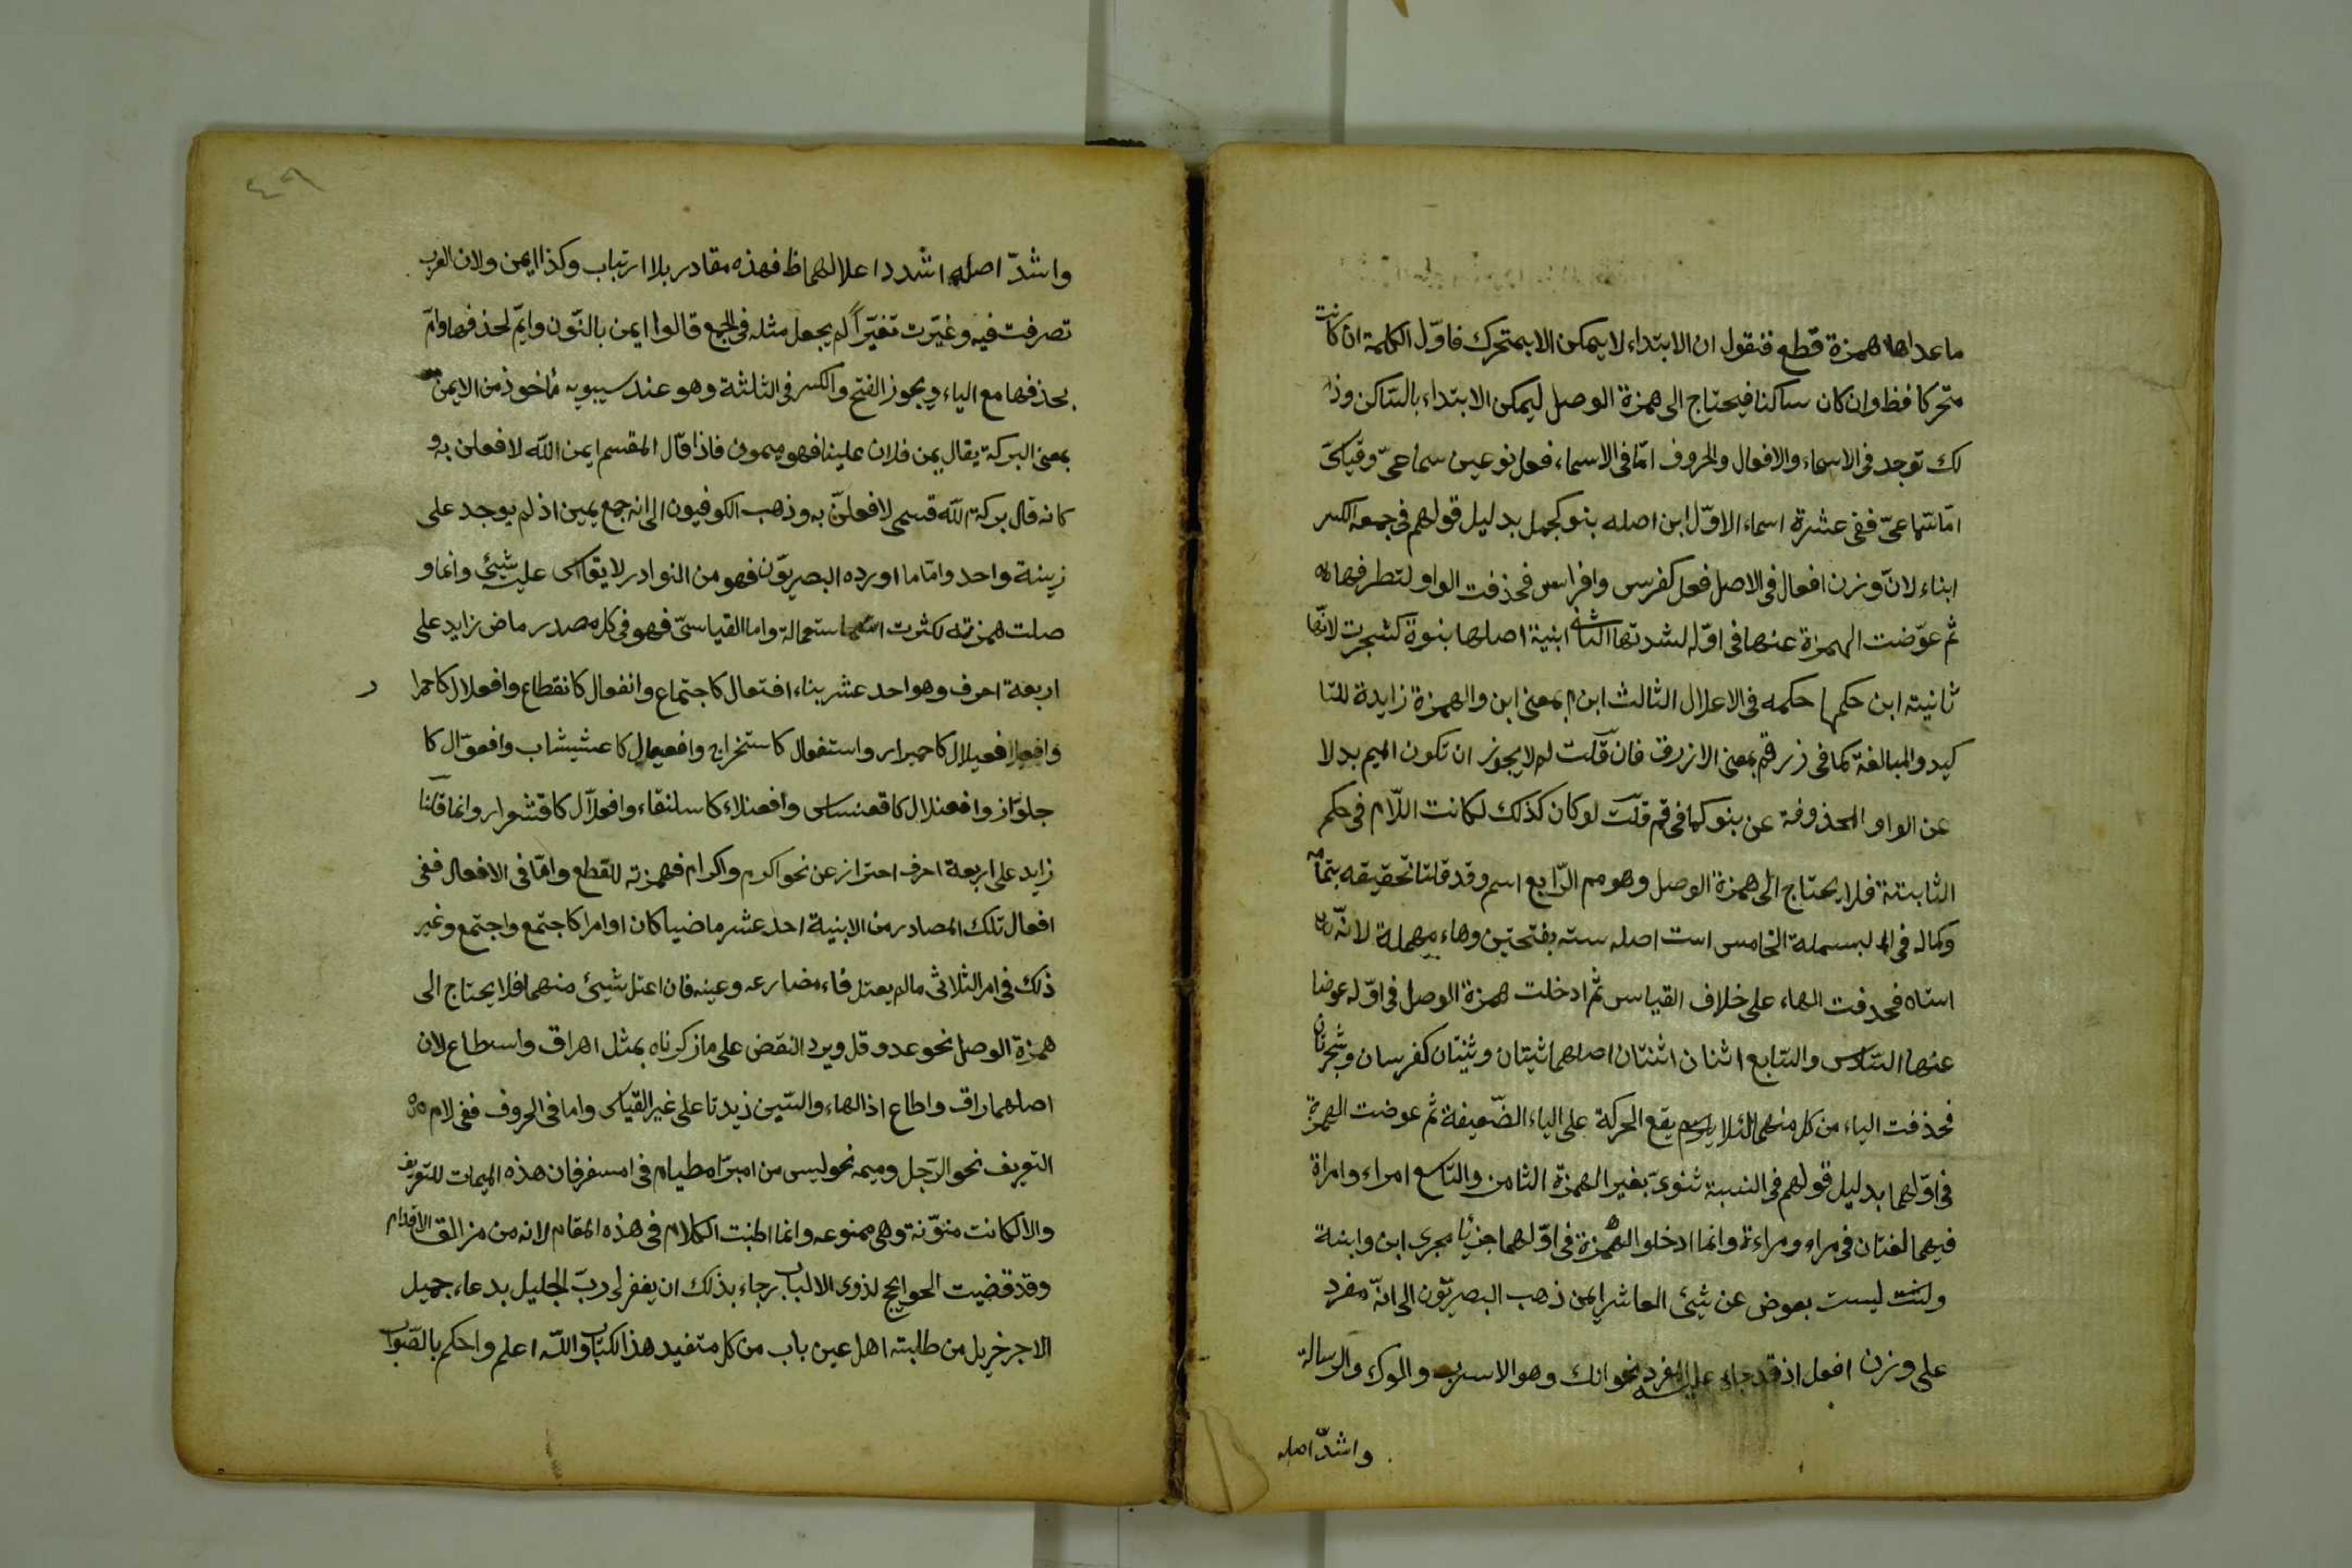 ما عداها همزة قطع فنقول ان الابتداء لا يمكن الا بمتحرك فاوّل الكلمة ان كانت
متحركا فظ وان كان ساكنا فيحتاج الى همزة الوصل ليمكن الابتداء بالساكن وذا
لك توجد فى الاسماء والافعال والحروف امّا فى الاسماء فعل نوعين سماعىّ وقياسىّ
امّا سّماعىّ ففى عشرة اسماء الاوّل ابن اصله بنو كجمل بدليل قولهم فى جمعه الكسر
ابناء لانّ وزن افعال فى الاصل فعل كفرس وافراس فحذفت الواو لتطرفها
ثم عوّضت الهمزة عنها فى اوّله لشدتها الثانى ابنية اصلها بنوة كشجرت لانّها
ثانيته ابن حكمها حكمه فى الاعلال الثالث ابن م بمعنى ابن والهمزة زايدة للتا
كيد والمبالغة كما فى زرقم بمعنى الازرق فان قلت لم لا يجوز ان تكون الميم بدلا
عن الواو المحذوفة عن بنو كما فى قم قلت لو كان كذلك لكانت اللّام فى حكم
الثابتة فلا يحتاج الى همزة الوصل وهو مم الرّابع اسم وقد قلنا تحقيقه بتمامه
وكماله فى البسملة الخامس است اصله سته بفتحتين وهاء مهملة لانّه
استاه فحدفت الهاء على خلاف القياس ثم ادخلت همزة الوصل فى اوّله عوضا
عنها السّادس والسّابع اثنان اثنتان اصلهما ثنيان وثنيتان كفرسان وشجرتان
فحذفت الياء من كل منهما لئلا يقع الحركة على الياء الضّعيفة ثم عوضت الهمزة
فى اوّلهما بدليل قولهم فى النسبة ثنوىّ بغير الهمزة الثامن والتّاسع امراء وامراة
فيهما لغتان فى مراء ومراءة وانما ادخلوا الهمزة فى اوّلهما جريا مجرى ابن وابنة
وليست بعوض عن شيئ العاشر ايمن ذهب البصريّون الى انّه مفرد
على وزن افعل اذ قد جاء عليه المفرد نحو انك وهو الاسرب والموك والرسالة
واشدّ اصله
٤٩
واشدّ اصله اشدد اعلالهما ظ فهذه مقادر بلا ارتياب وكذا ايمن ولان العرب
تصرفت فيه وغيّرت تغيّراً لم يجعل مثله فى الجمع قالوا ايمن بالنّون وايمّ لحذفها وامّ
بحذفها مع الياء ويجوز الفتح والكسر فى الثلثة وهو عند سيبويه مأخوذ من الايمن
بمعنى البركة يقال يمن فلان علينا فهو ميمون فاذا قال المقسم ايمن الله لافعلن به و
كانه قال بركة الله قسمى لافعلنّ به وذهب الكوفيون الى انه جمع يمين اذ لم يوجد على
زينة واحد وامّا ما اورده البصريّون فهو من النوادر لا يقاس عليه شيئ وانما و
صلت همزته لكثرت استعمالة واما القياسىّ فهو فى كل مصدر ماض زايد على
اربعة احرف وهو احد عشر بناء افتعال كاجتماع وانفعال كانقطاع وافعلال كاحمرا ر
وافعيلال كاحميرار واستفعال كاستخراج وافعيعال كاعشيشاب وافعوّال كا
جلوّاز وافعنلال كاقعنساس وافعنلاء كاسلنقاء وافعلاّل كاقشعرار وانما قلنا
زايد على اربعة احرف احتراز عن نحو اكرم واكرام فهمزته للقطع وامّا فى الافعال ففى
افعال تلك المصادر من الابنية احد عشر ماضيا كان او امرا كاجتمع واجتمع وغير
ذلك فى امر الثلاثى ما لم يعتل فاء مضارعه وعينه فان اعتل شيئ منهما فلا يحتاج الى
همزة الوصل نحو عد وقل ويرد النقض على ما ذكرناه بمثل اهراق واسطاع لان
اصلهما راق واطاع اذ الهاء والسّين زيدتا على غير القياس واما فى الحروف ففى لام
التعريف نحو الرّجل وميمه نحو ليس من امبرّ امصيام فى امسفر فان هذه الميمات للتعريف
والا لكانت منوّنة وهى ممنوعه وانما اطنبت الكلام فى هذه المقام لانه من مزالق الاقدام
وقد قضيت الحوايج لذوى الالباب رجاء بذلك ان يغفر لى ربّ الجليل بدعاء جميل
الاجر خريل من طلبته اهل عين باب من كل متفيد هذا الكتاب والله اعلم واحكم بالصّواب